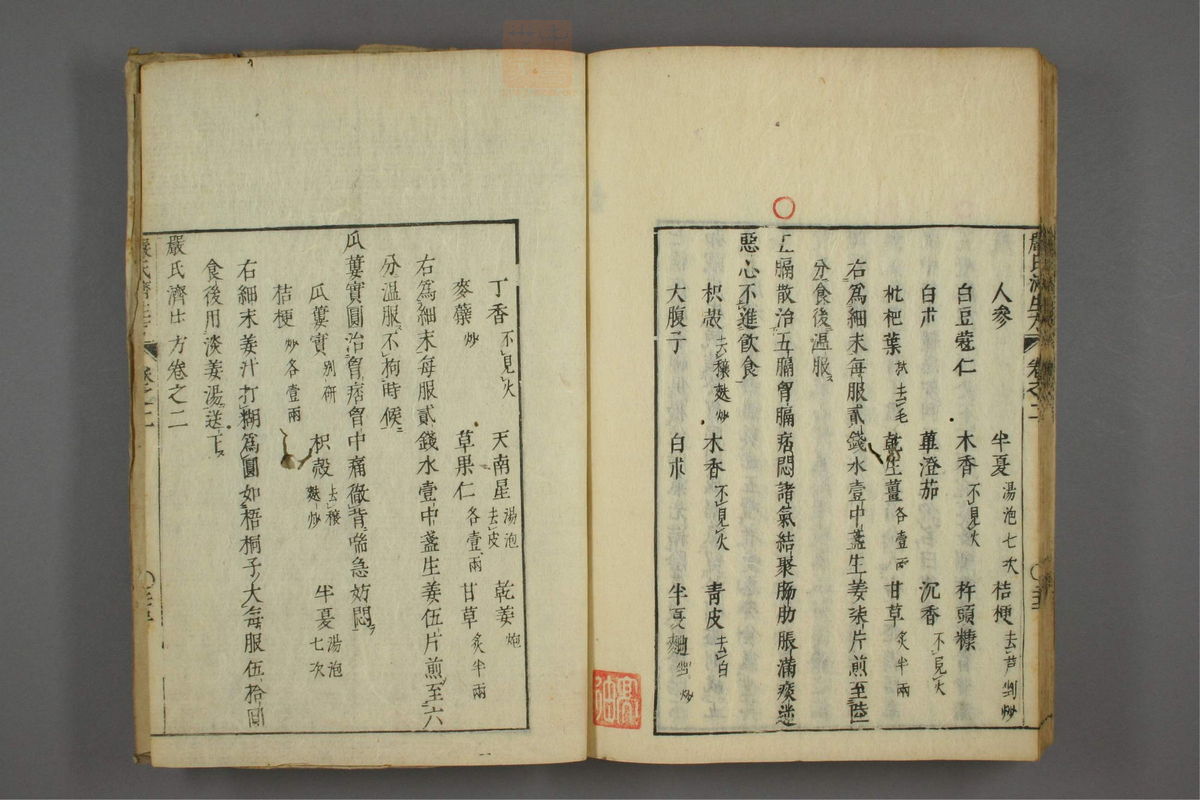 人參 半夏湯泡七次 桔梗去芦剉炒
白豆蔻仁 木香不見火 杵頭糠
白朮 蓽澄茄 沉香不見火
枇杷葉拭去毛 乾生薑各壹兩 甘草炙半兩
右爲細末每服貳錢水壹中盞生姜柒片煎至陸
分食後溫服
五膈散治五膈胷膈痞悶諸氣結聚脇肋脹滿痰逆
惡心不進飲食
枳殼去穰麩炒 木香不見火 青皮去白
大腹子 白朮 半夏麯剉炒
丁香不見火 天南星湯泡去皮 乾姜炮
麥蘖炒 草果仁各壹兩 甘草炙半兩
右爲細末每服貳錢水壹中盞生姜伍片煎至六
分溫服不拘時候
瓜蔞實圓治胷痞胷中痛徹背喘急妨悶
瓜蔞實別研 枳殼去穰麩炒 半夏湯泡七次
桔梗炒各壹兩
右細末姜汁打糊爲圓如梧桐子大每服伍拾圓
食後用淡姜湯送下
嚴氏濟生方卷之二